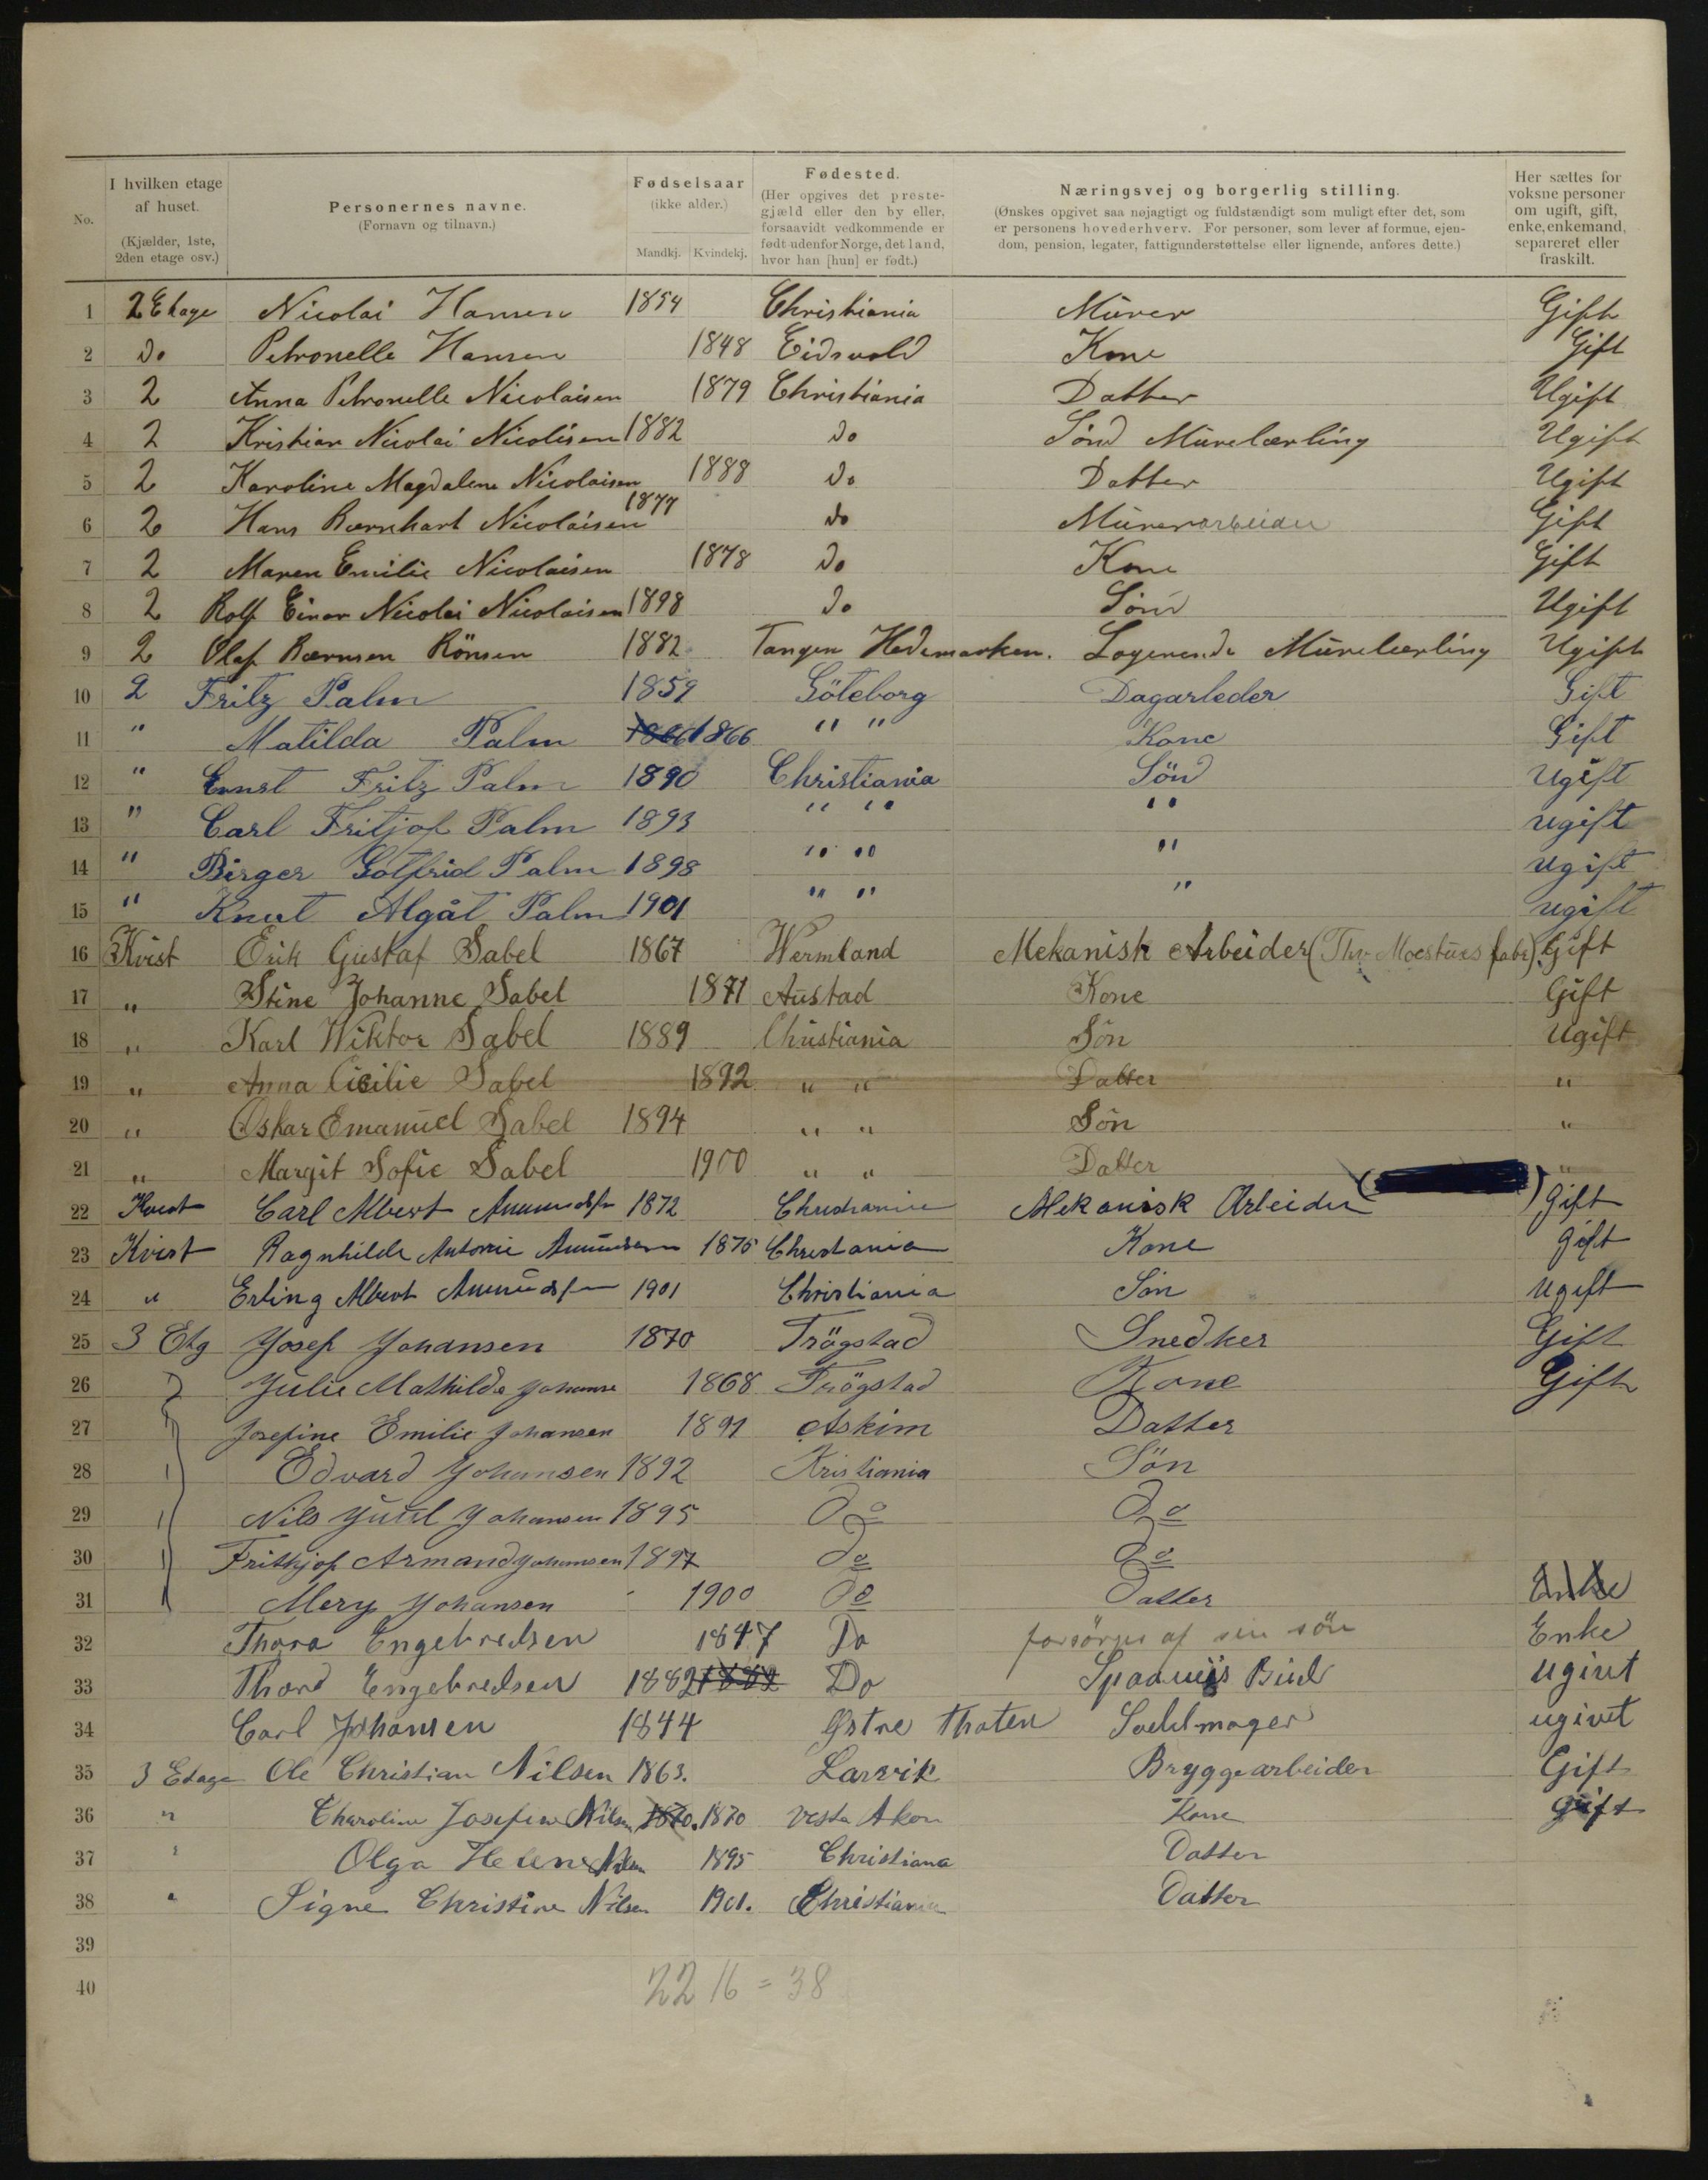 No.
I hvilken etage af huset.
(Kjælder, 1ste, 2den etage osv.)
Personernes navne.
(Fornavn og tilnavn.)
Fødselsaar
(ikke alder.)
Mandkj. Kvindekj.
Fødested.
(Her opgives det prestegjæld eller den by eller, forsaavidt vedkommende er født udenfor Norge, det land, hvor han [hun] er født.)
Næringsvej og borgerlig stilling.
(Ønskes opgivet saa nøjagtigt og fuldstændigt som muligt efter det, som er personens hovederhverv. For personer, som lever af formue, ejendom, pension, legater, fattigunderstøttelse eller lignende, anføres dette.)
Her sættes for voksne personer om ugift, gift, enke, enkemand, separeret eller fraskilt.
1 2 Etage Nicolai Hansen 1854 Christiania Murer Gift
2 Do Petronelle Hansen 1848 Eidsvold Kone Gift
3 2 Anna Petronelle Nicolaisen 1879 Christiania Datter Ugift
4 2 Kristian Nicolai Nicolisen 1882 Do Sönd Murelærling Ugift
5 2 Karoline Magdalene Nicolaisen 1888 Do Datter Ugift
6 2 Hans Bærnhart Nicolaisen 1877 Do Murerarbeider Gift
7 2 Maren Emilie Nicolaisen 1878 Do Kone Gift
8 2 Rolf Einar Nicolai Nicolaisen 1898 Do Sönd Ugift
9 2 Olaf Bærnsen Rönsen 1882 Tangen Hedemarken. Logerende Murelærling Ugift
10 2 Fritz Palm 1859 Göteborg Dagarleder Gift
11 " Matilda Palm 1866 1866 " " Kone Gift
12 " Ernst Fritz Palm 1890 Christiania Sönd Ugift
13 " Carl Fritjof Palm 1893 " " " ugift
14 " Birger Gotfrid Palm 1898 " " " ugift
15 " Knut Algåt Palm 1901 " " " ugift
16 Kvist Erik Gustaf Sabel 1867 Wermland Mekanisk Arbeider (Thv. Moestues fabr). Gift
17 " Stine Johanne Sabel 1871 Austad Kone Gift
18 " Karl Wiktor Sabel 1889 Christiania Sön Ugift
19 " Anna Cicilie Sabel 1892 " " Datter "
20 " Oskar Emanuel Sabel 1894 " " Sön "
21 " Margit Sofie Sabel 1900 " " Datter "
22 Kvist Carl Albert Amundsen 1872 Christiania Mekanisk Arbeider ( ) Gift
23 Kvist Ragnhilde Antonie Amundsen 1875 Christania Kone Gift
24 " Erling Albert Amundsen 1901 Christiania Sön Ugift
25 3 Etg Josef Johansen 1870 Trögstad Snedker Gift
26 " Julie Mathilde Johanse 1868 Trögstad Kone Gift
27 " Josefine Emilie Johansen 1891 Askim Datter
28 " Edvard Johansen 1892 Kristiania Sön
29 " Nils Juul Johansen 1895 Do Do
30 " Frithjof Armand Johansen 1897 Do Do
31 " Mery Johansen 1900 Do Datter Enke
32 Thora Engebredsen 1847 Do forsörges af sin sön Enke
33 Thord Engebredsen 1882 1882 Do Bud ugivt
34 Carl Johansen 1844 Østre Thoten Sadelmager ugivet
35 3 Etage Ole Christian Nilsen 1863. Larvik Bryggearbeider Gift
36 " Charoline Josefine Nilsen 1870. 1870 Vestre Aker Kone gift
37 " Olga Helene Nilsen 1895 Christiana Datter
38 " Signe Christine Nilsen 1901. Christiania Datter
39
40
22 16 = 38